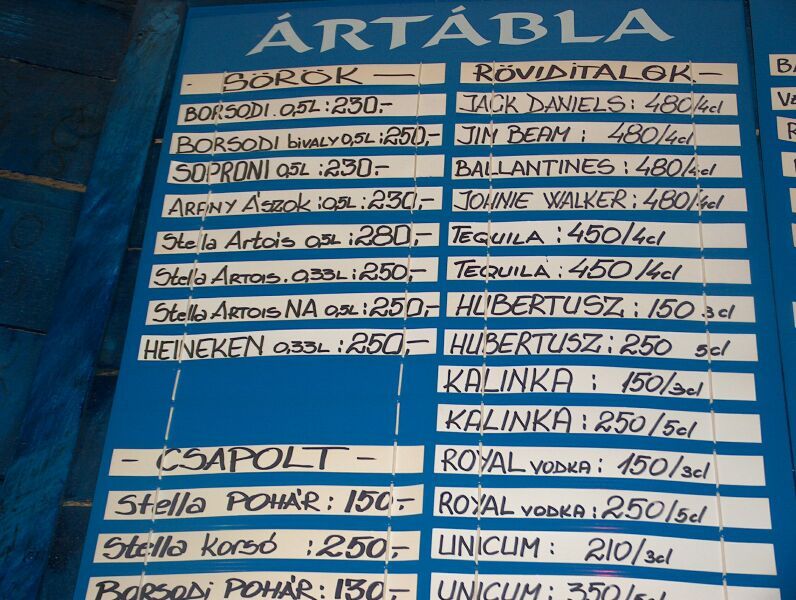 ÁRTÁBLA
- SÖRÖK -
BORSODI 0,5L: 230,-
BORSODI bivaly 0,5L: 250,-
SOPRONI 0,5L: 230,-
ARANY ÁSZOK 0,5L: 230,-
Stella Artois 0,5L: 280,-
Stella Artois. 0,33L: 250,-
Stella Artois NA 0,5L: 250,-
HEINEKEN 0,33L: 250,-
- CSAPOLT -
Stella POHÁR: 150,-
Stella korsó : 250,-
BORSODI POHÁR: 130,-
RÖVIDITALOK.-
JACK DANIELS: 480/4cl
JIM BEAM : 480/4cl
BALLANTINES: 480/4cl
JOHNIE WALKER: 480/4cl
TEQUILA : 450/4cl
TEQUILA : 450/4cl
HUBERTUSZ: 150 3cl
HUBERTUSZ: 250 5cl
KALINKA : 150/3cl
KALINKA: 250/5cl
ROYAL VODKA: 150/3cl
ROYAL VODKA: 250/5cl
UNICUM: 210/3cl
UNICUM: 350/5cl